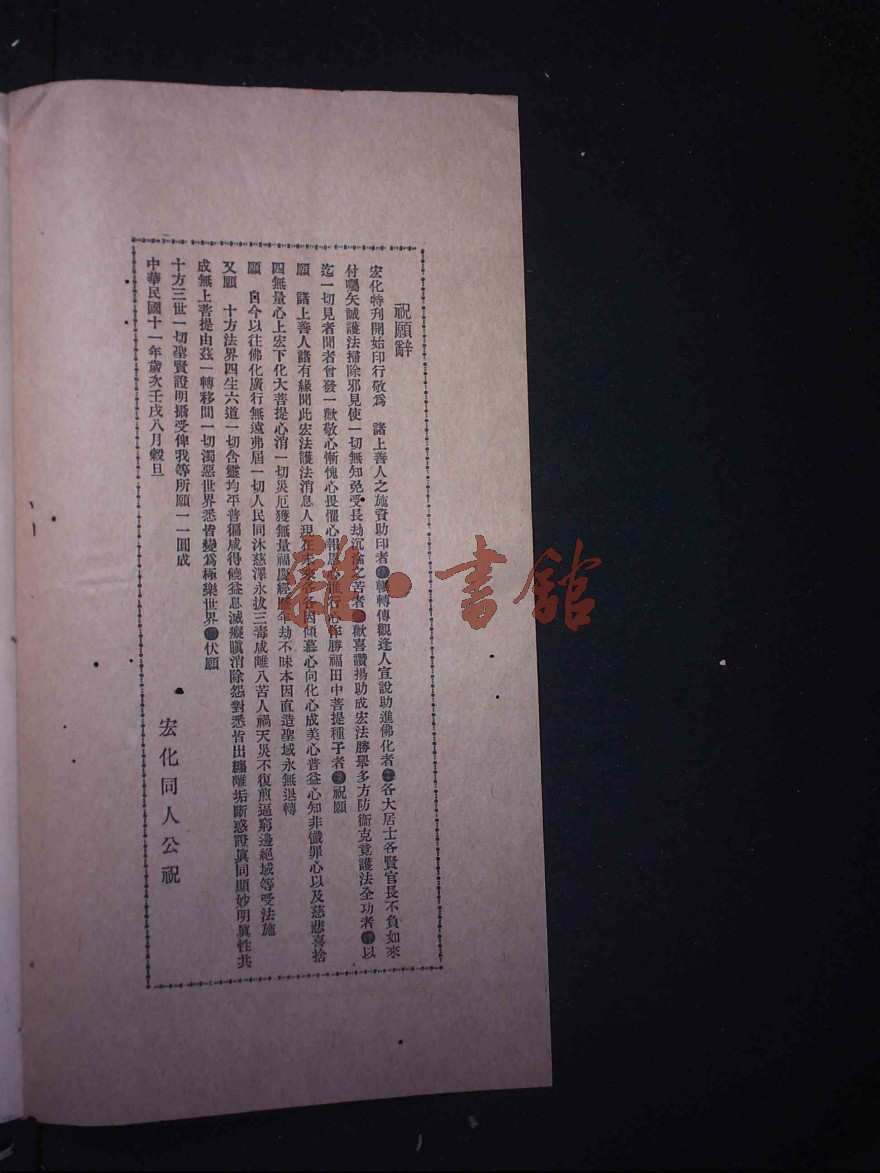 祝願辭
宏化特刊開始印行敬爲　諸上善人之施資助印者　輾轉傳觀逢人宣說助進佛化者　各大居士各賢官長不負如來
付囑矢誠護法掃除邪見使一切無知免受長劫沉淪之苦者　歡喜讚揚助成宏法勝舉多方防衞克竟護法全功者　以
迄一切見者聞者曾發一歡敬心慚愧心畏懼心報恩心進行心作勝福田中菩提種子者　祝願
願　諸上善人諸有緣聞此宏法護法消息人現在未來各各因傾慕心向化心成美心普益心知非懺罪心以及慈悲喜捨
四無量心上宏下化大菩提心消一切災厄獲無量福慶經歷年劫不昧本因直造聖域永無退轉
願　自今以往佛化廣行無遠弗屆一切人民同沐慈澤永拔三毒咸離八苦人禍天災不復煎逼窮邊絕域等受法施
又願　十方法界四生六道一切含靈均平普徧咸得饒益息滅癡瞋消除怨對悉皆出纏離垢斷惑證眞同顯妙明眞性共
成無上菩提由茲一轉移間一切濁惡世界悉皆變爲極樂世界　伏願
十方三世一切聖賢證明攝受俾我等所願一一圓成
中華民國十一年歲次壬戌八月穀旦
宏化同人公祝
書館